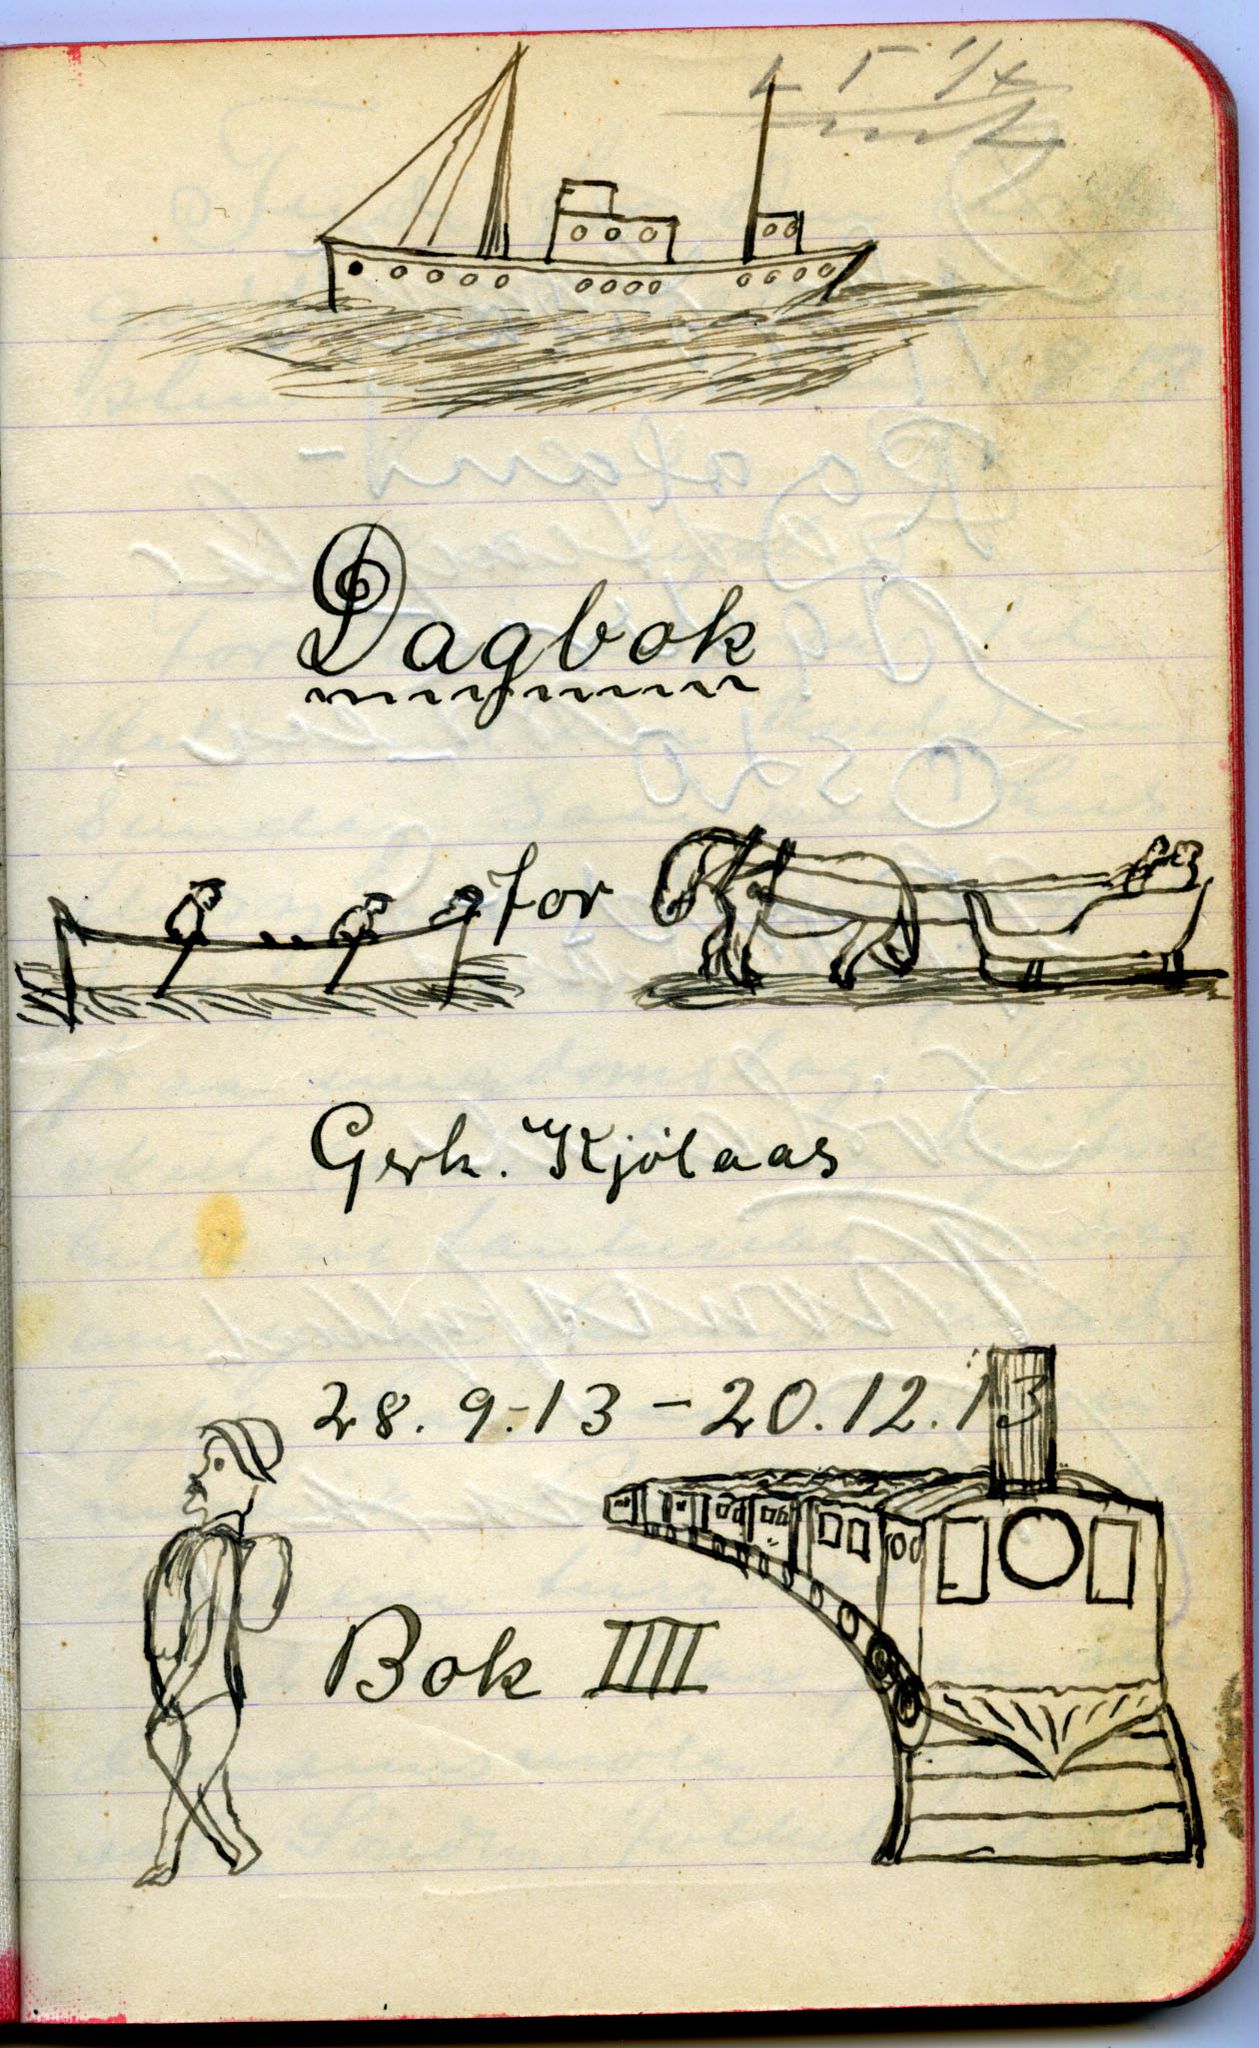 Dagbok
for
Gerh. Kjølaas
28. 9.-13 - 20.12.13
Bok IIII